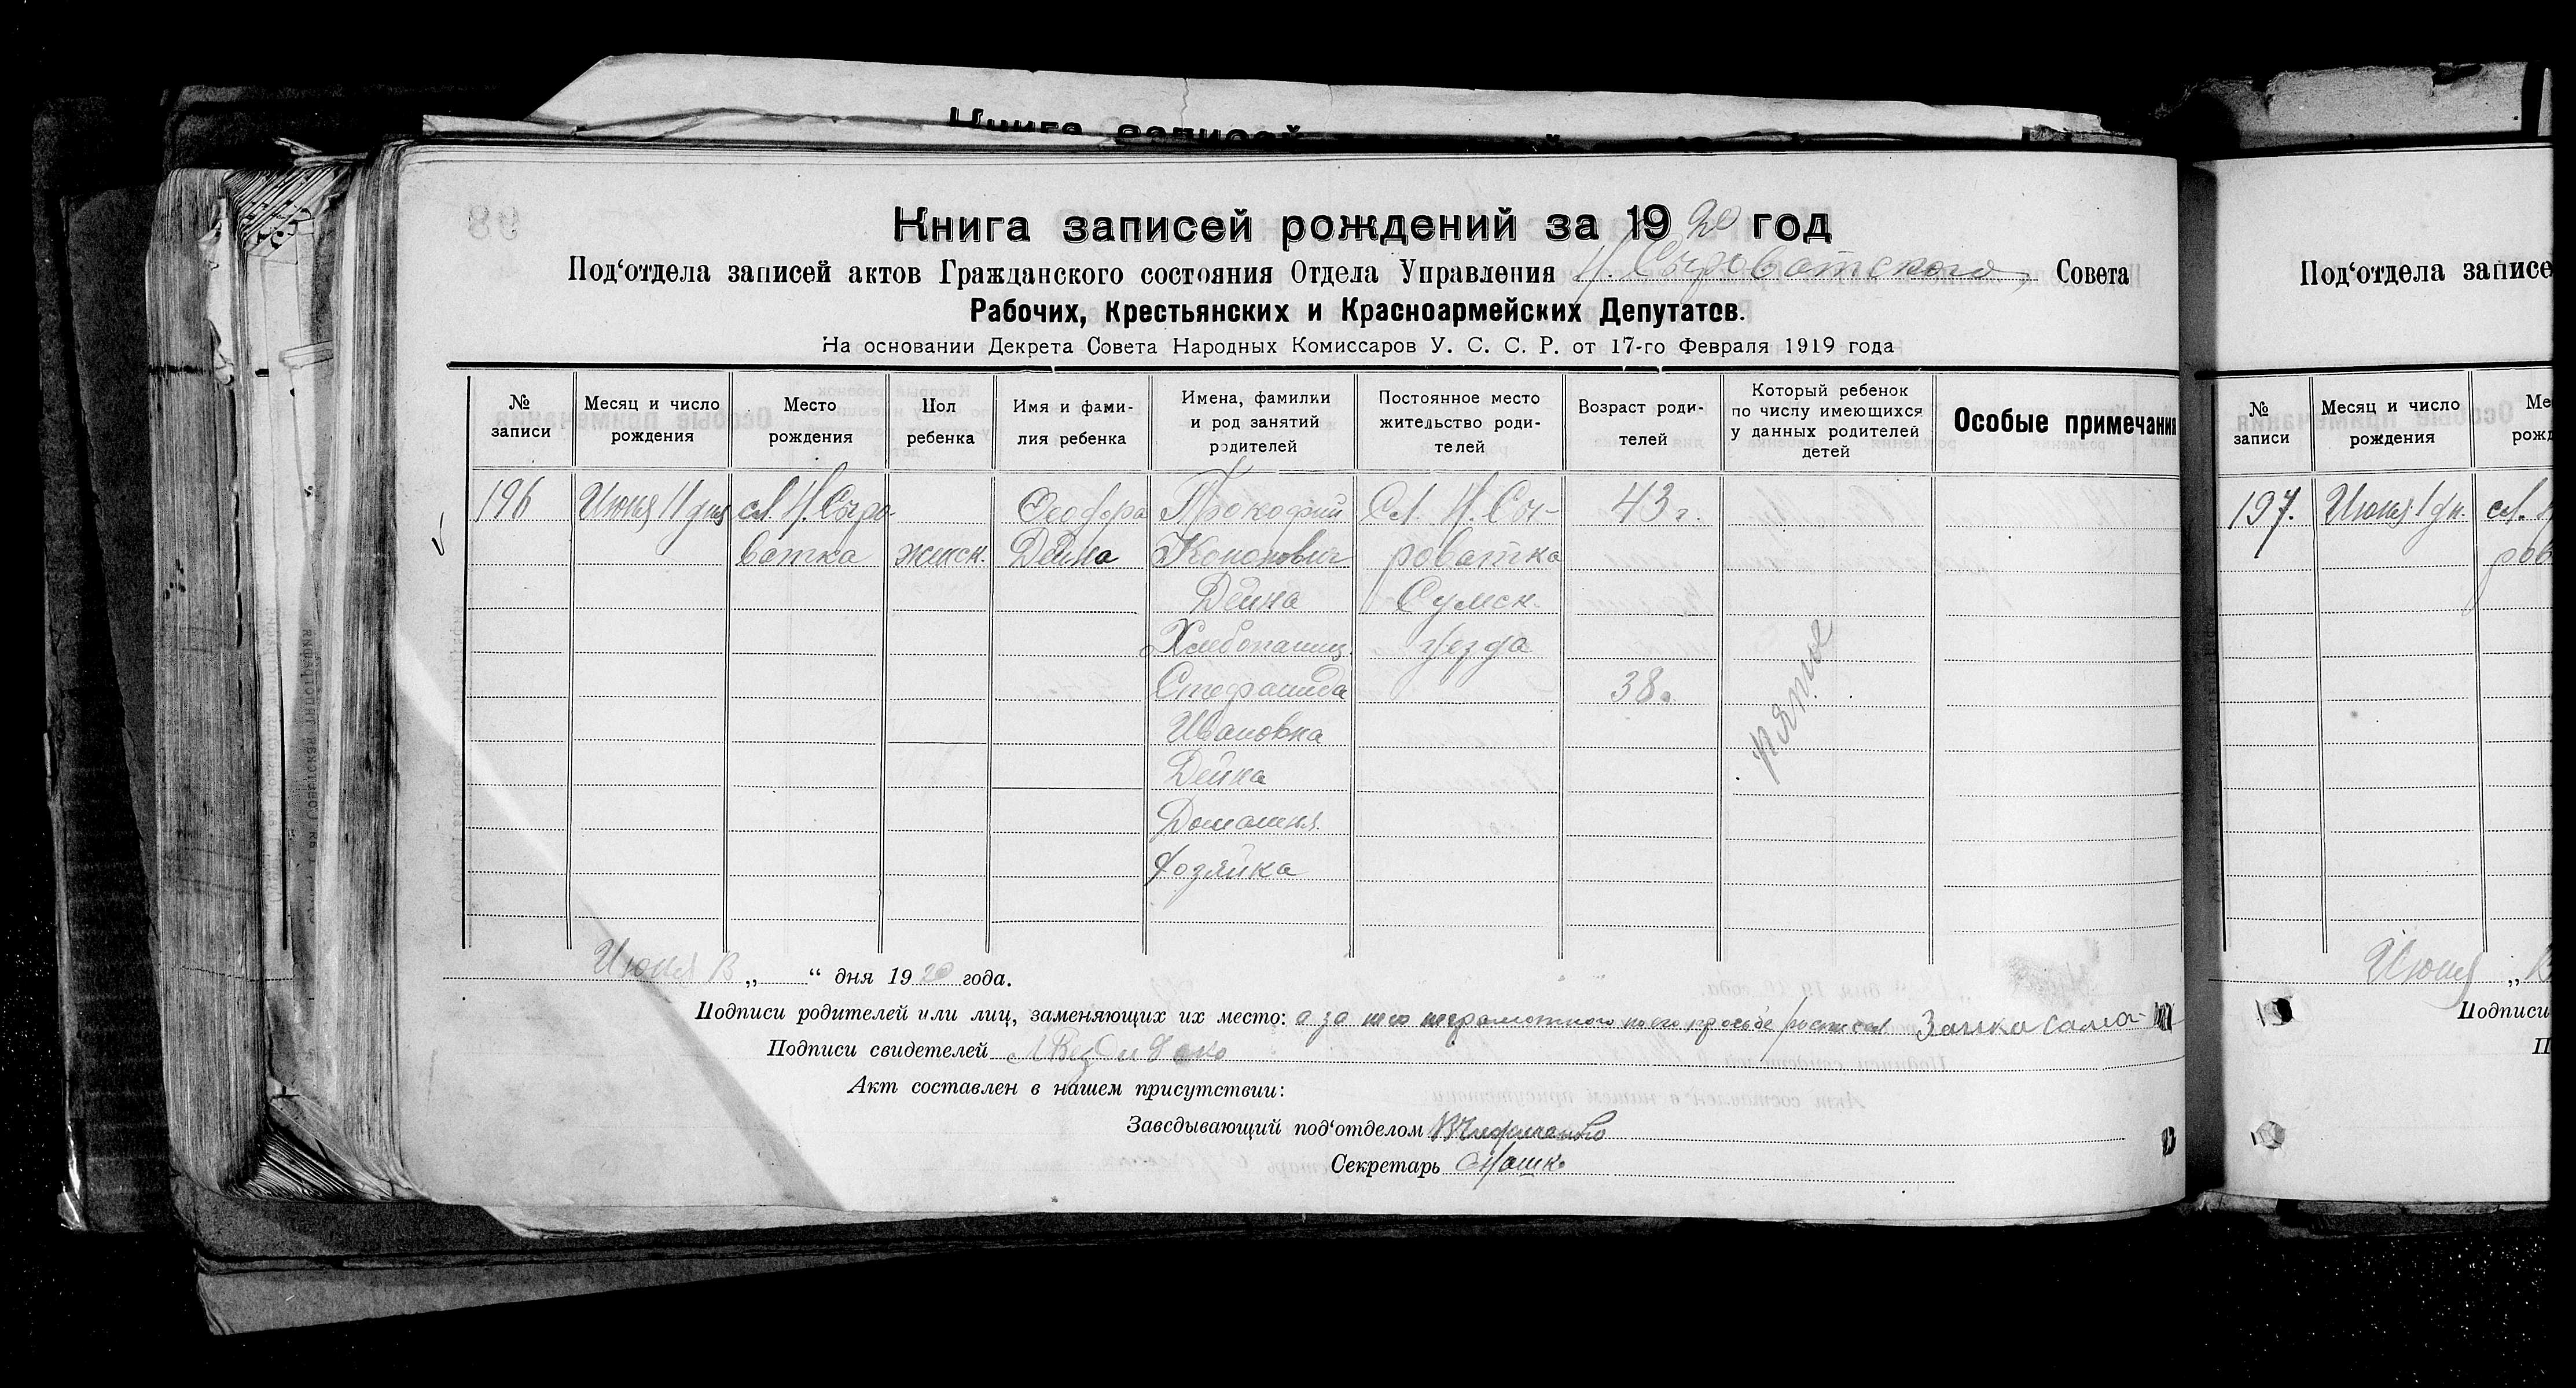 Книга записей
Книга записей рождений за 1920 год
Под‘отдела записей актов Гражданского состояния Отдела Управления Н. Сыроватского Совета
Рабочих, Крестьянских и Красноармейских Депутатов.
На основании Декрета Совета Народных Комиссаров У. С. С. Р. от 17-го Февраля 1919 года
№ записи
Месяц и число рождения
Место рождения
Пол ребенка
Имя и фами-
лия ребенка
Имена, фамилии
и род занятий
родителей
Постоянное место
жительство роди-
телей
Возраст роди-
телей
Который ребенок
по числу имеющихся
у данных родителей
детей
Особые примечания
196 Июня 11 дня сл. Н. Сыро- Феодора Прокофий Сл. Н. Сы- 43 г.
ватка женск. Дейна Кононович роватка
Дейна Сумск.
Хлебопашец уезда
Стефанида 38.
Ивановна
Дейна
Домашня
Хозяйка
пятое
Июня 13 „ “ дня 1920 года.
Подписи родителей или лиц, заменяющих их место: а за его неграмотного по его просьбе
Подписи свидетелей
Акт составлен в нашем присутствии:
Заведывающий под‘отделом
Секретарь
Под‘отдела записе
№ записи
Месяц и число рождения
Ме
рожд
197. Июня 1 дн. сл. Н
ров
Июня „
Подписи
П